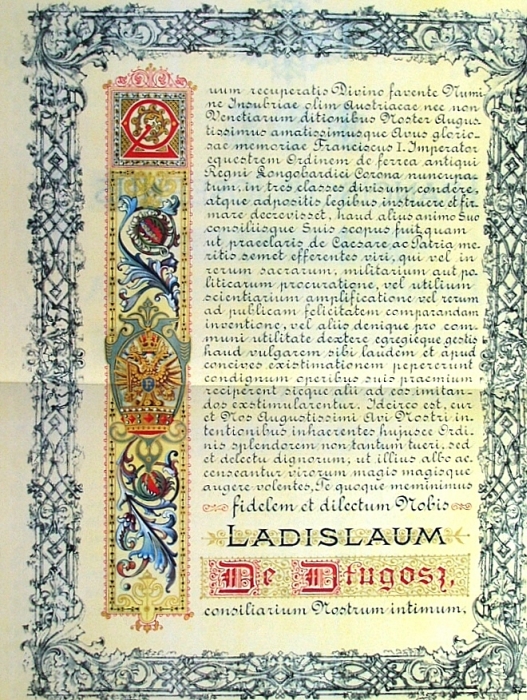 Quum recuperatis Divino favente Numi
ne Insubriae olim Austriacae nec non
Venetiarum ditionibus Noster Augus
tissimus amatissimusque Avus glorio-
sae memoriae Franciscus I. Imperator
equestrem Ordinem de ferrea antiqui
Regni Longobardici Corona nuncupa
tum, in tres classes divisum condere,
atque adpositis legibus instruere et fir
mare decrevisset, haud alius animo Suo
consiliisque Suis scopus fuit, quam
ut praeclaris de Caesare ac Patria me
ritis semet efferentes viri, qui vel in
rerum sacrarum, militarium aut po
liticarum procuratione, vel utilium
scientiarium amplificatione vel rerum
ad publicam felicitatem comparandam
inventione, vel aliis denique pro com
muni utilitate dextere egregieque gestis
haud vulgarem sibi laudem et apud
concives existimationem pepererunt
condignum operibus suis praemium
reciperent sicque alii ad eos imitan
dos exstimularentur. Idcirco est, cur
et Nos Augustissimi Avi Nostri in
tentionibus inhaerentes hujusce Ordi
nis splendorem non tantum tueri, sed
et delectu dignorum, ut illius albo ac
censeantur virorum magis magisque
augere volentes, Te quoque meminimus
fidelem et dilectum Nobis
LADISLAUM
De Długosz,
consiliarium Nostrum intimum.